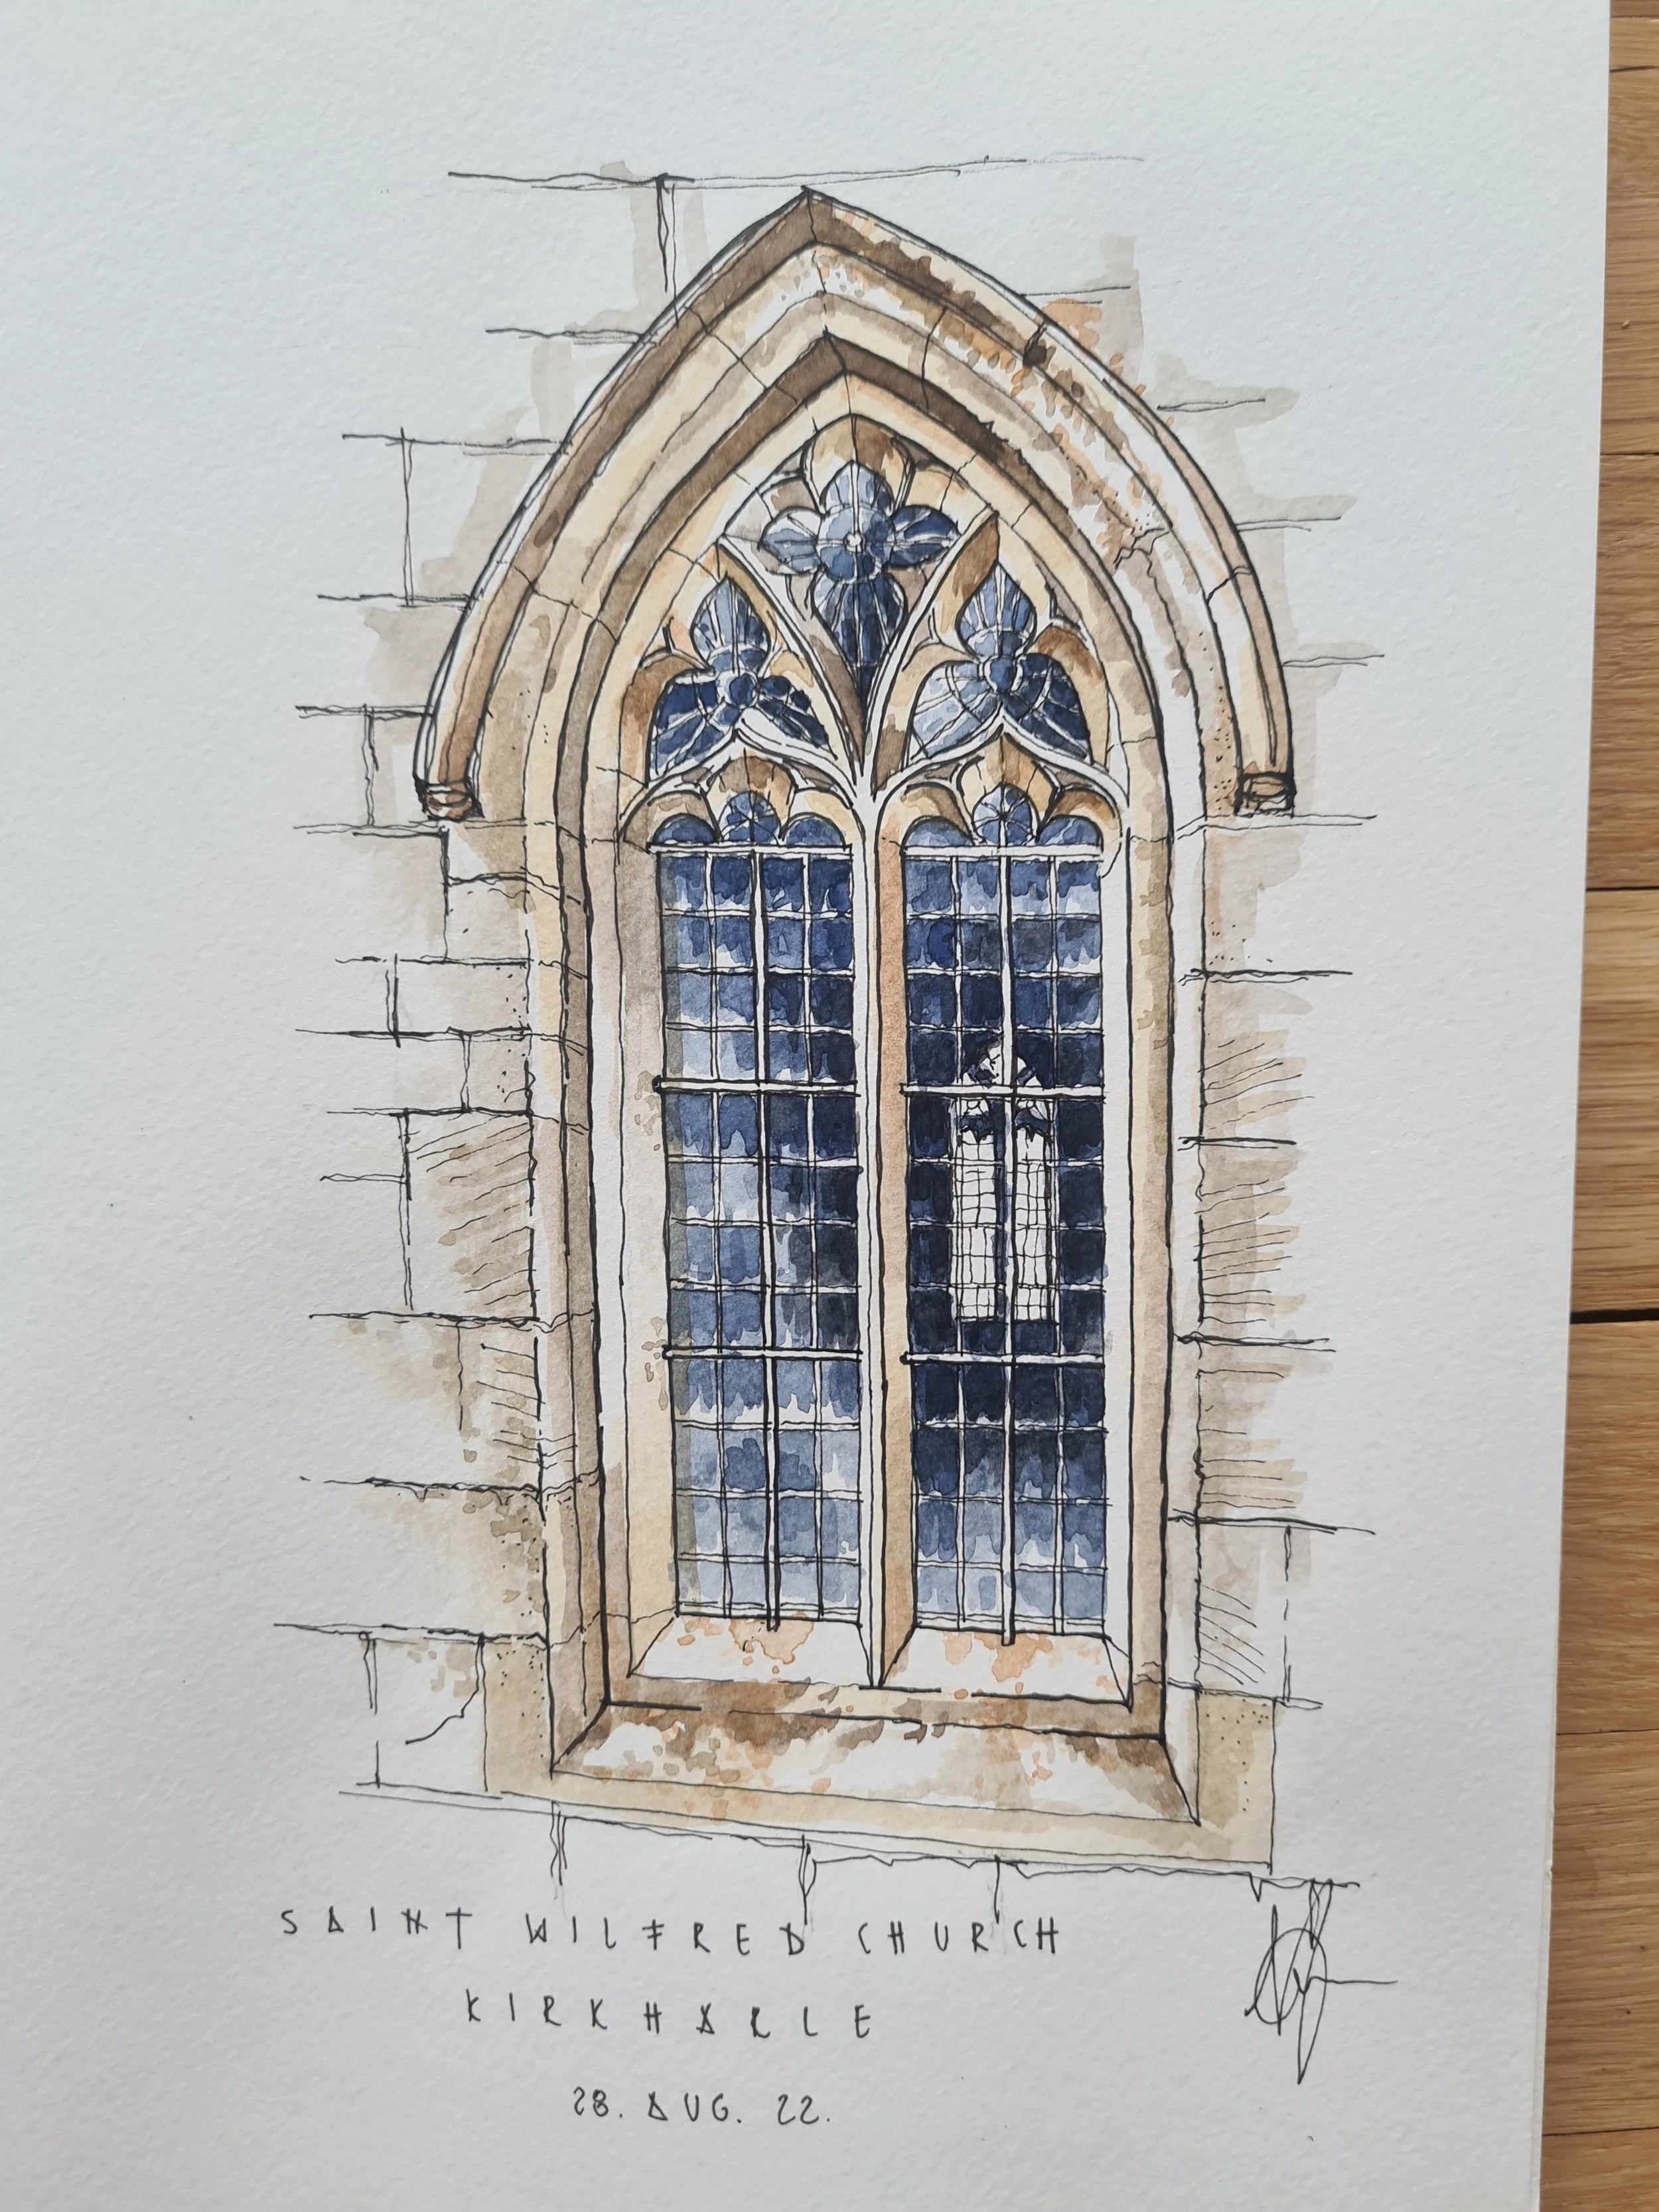 SAINT WILFRED CHURCH
KIRKHARLE
28. AUG. 22.